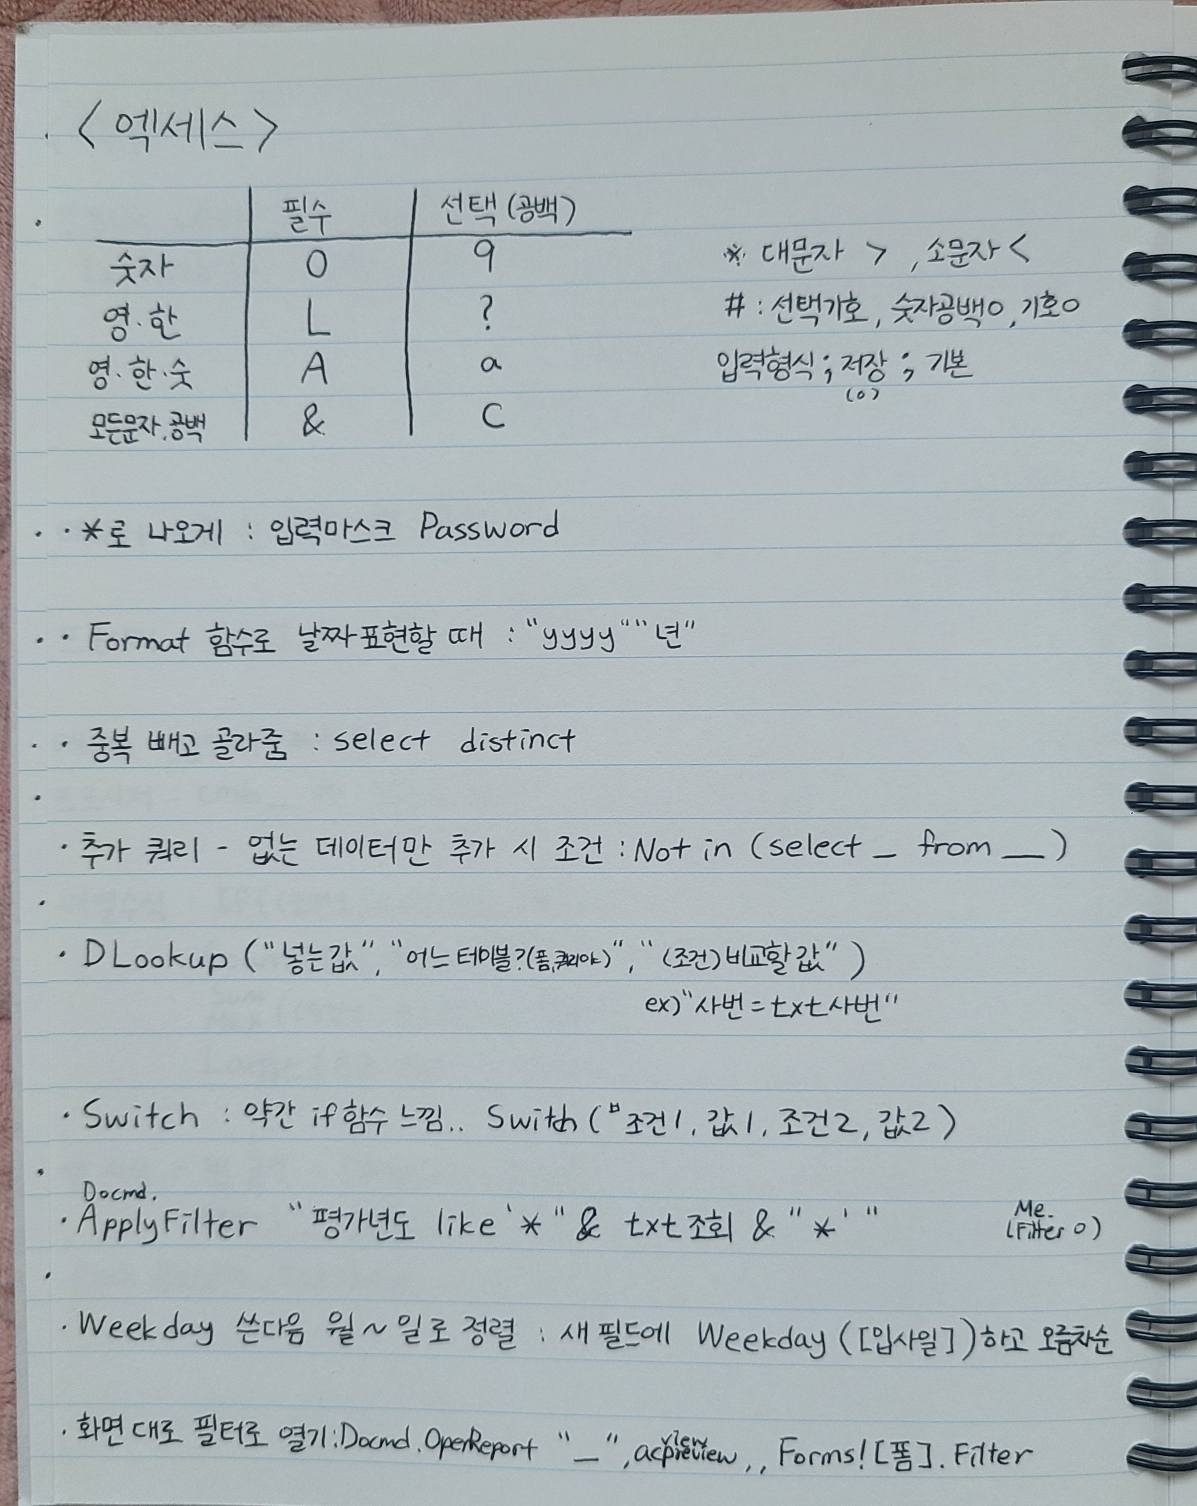 <엑세스>
필수 선택(공백)
숫자 0 9
영·한 L ?
영·한·숫 A a
모든문자,공백 & C
※ 대문자 > , 소문자 <
# : 선택기호, 숫자공백o, 기호o
입력형식 ; 저장 ; 기본
(0)
· *로 나오게 : 입력마스크 Password
· Format 함수로 날짜표현할 때 : "yyyy""년"
· 중복 빼고 골라줌 : select distinct
· 추가 쿼리 - 없는 데이터만 추가 시 조건 : Not in (select _ from __)
· DLookup ("넣는값", "어느테이블?(폼,쿼리야)", "(조건)비교할값")
ex)"사번=txt사번"
· Switch : 약간 if함수 느낌.. Swith ("조건1, 값1, 조건2, 값2)
Docmd.
· ApplyFilter "평가년도 like '*" & txt조회 & "*' "
Me.
(Filter o)
· Weekday 쓴다음 월~일로 정렬 : 새 필드에 Weekday ([입사일])하고 오름차순
· 화면 대로 필터로 열기:Docmd.OpenReport "_", acviewpreview,, Forms![폼].Filter